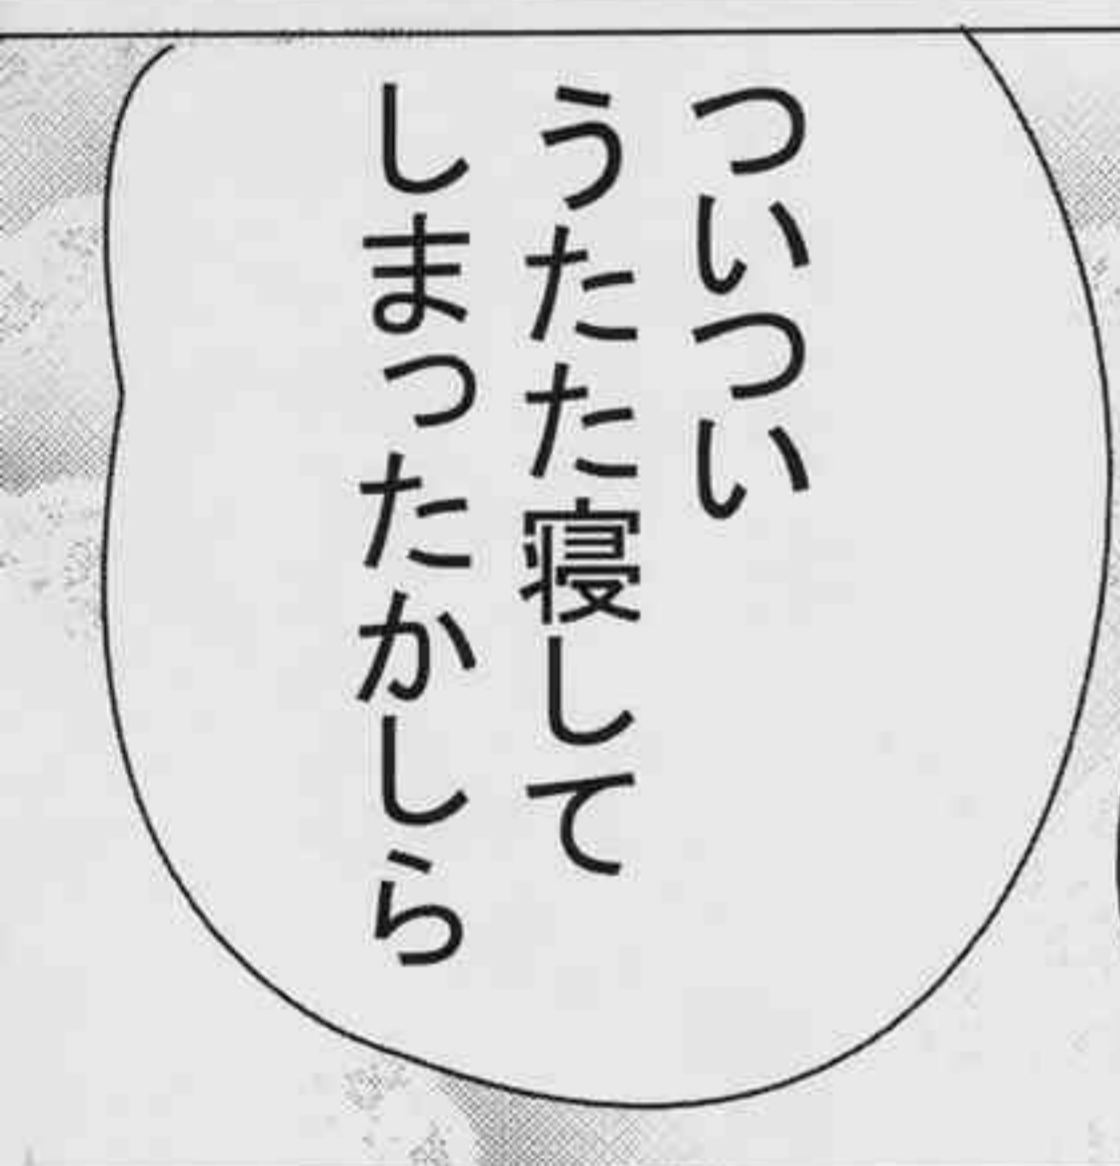 ついつい
うたた寝して
しまったかしら